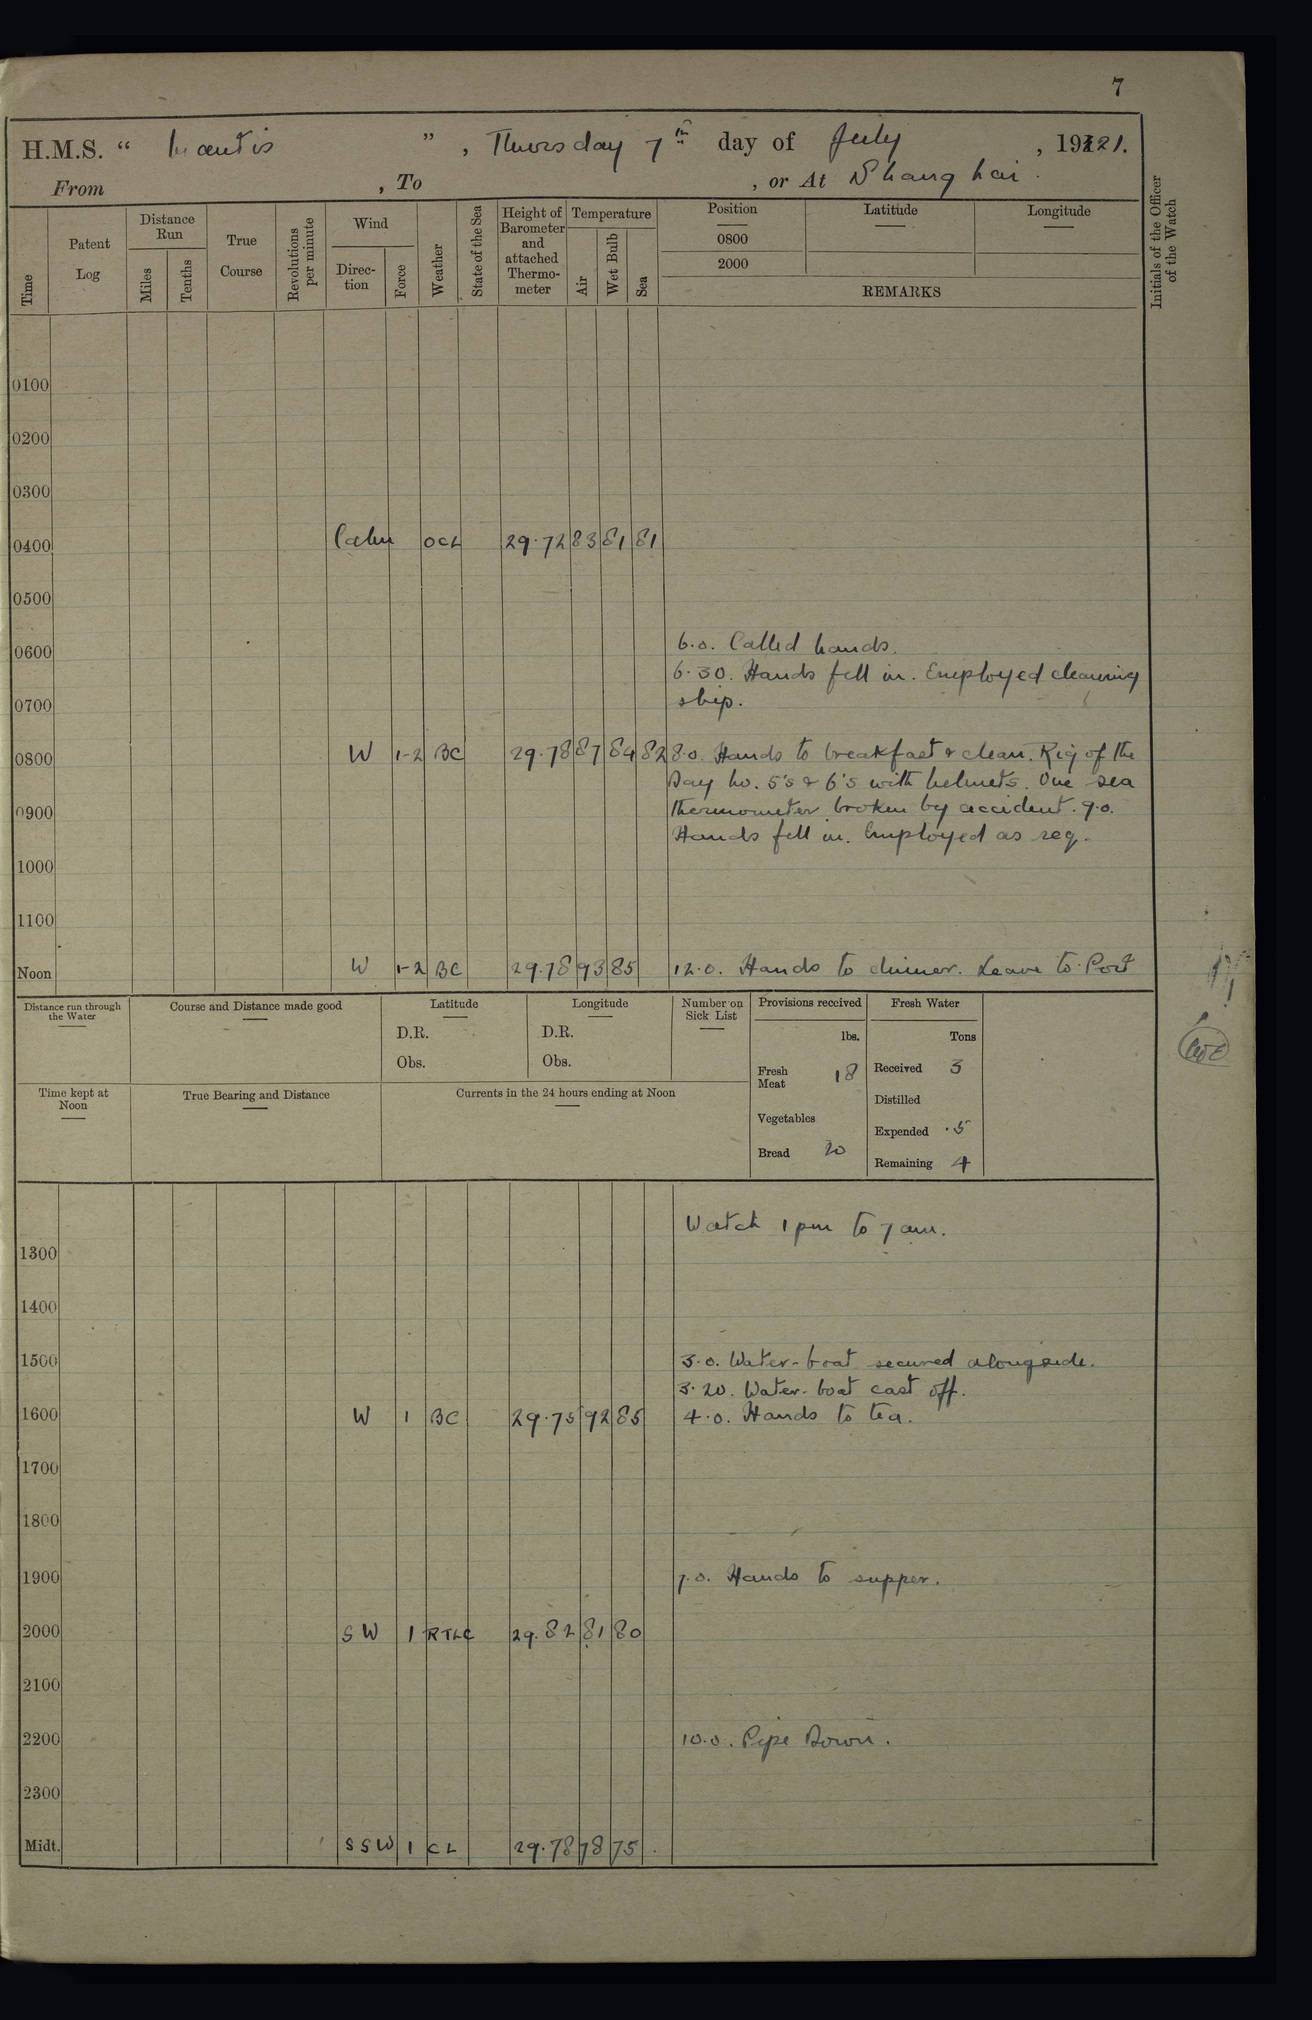 7
H.M.S. “ Mantis ”, Thursday 7th day of July, 1921.
From , To , or At Shanghai.
Time
Patent Log
Distance Run
Miles
Tenths
True Course
Revolutions per minute
Wind
Direction
Force
Weather
State of the Sea
Height of Barometer and attached Thermometer
Temperature
Air
Wet Bulb
Sea
Position
0800
2000
Latitude
Longitude
REMARKS
Initials of the Officer of the Watch
0100
0200
0300
0400 Calm OCL 29.72 83 81 81
0500
0600 6.0. Called hands.
6.30. Hands fell in. Employed cleaning
0700 ship.
0800 W 1-2 BC 29.78 87 84 82 8.0. Hands to breakfast & clean. Rig of the
Day No. 5's & 6's with helmets. One sea
0900 thermometer broken by accident. 9.0.
Hands fell in. Employed as req.
1000
1100
Noon W 1-2 BC 29.78 93 85 12.0. Hands to dinner. Leave to Port
Distance run through the Water
Course and Distance made good
Latitude
D.R.
Obs.
Longitude
D.R.
Obs.
Number on Sick List
Provisions received
lbs.
Fresh Meat 18
Vegetables
Bread 20
Fresh Water
Tons
Received 3
Distilled
Expended .5
Remaining 4
Time kept at Noon
True Bearing and Distance
Currents in the 24 hours ending at Noon
Watch 1 pm to 7 am.
1300
1400
1500 3.0. Water-boat secured alongside.
3.20. Water-boat cast off.
1600 W 1 BC 29.75 92 85 4.0. Hands to tea.
1700
1800
1900 7.0. Hands to supper.
2000 SW 1 RTLC 29.82 81 80
2100
2200 10.0. Pipe Down.
2300
Midt. SSW 1 CL 29.78 78 75